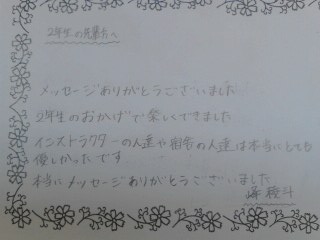 2年生の先輩方へ
メッセージありがとうございました
2年生のおかげで楽しくできました
インストラクターの人達や宿舎の人達は本当にとても
優しかったです
本当にメッセージありがとうございました